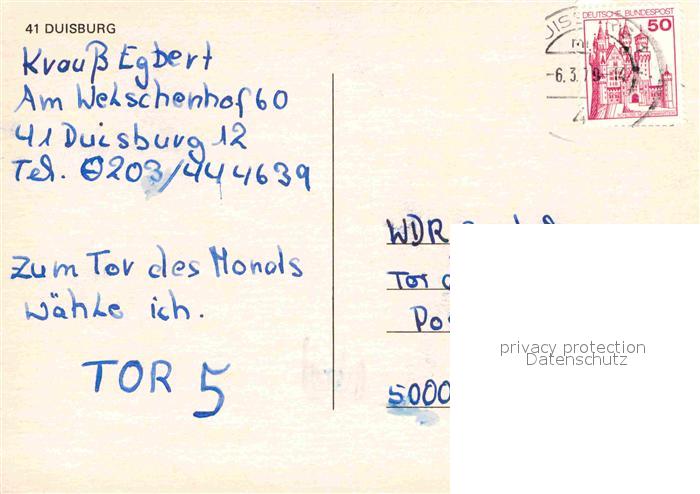 41 DUISBURG
Krauß Egbert
Am Welschenhof 60
41 Duisburg 12
Tel. 0203/444639
Zum Tor des Monats
wähle ich.
TOR 5
DEUTSCHE BUNDESPOST
50
-6.3.79
WDR
Tor
5000
privacy protection
Datenschutz